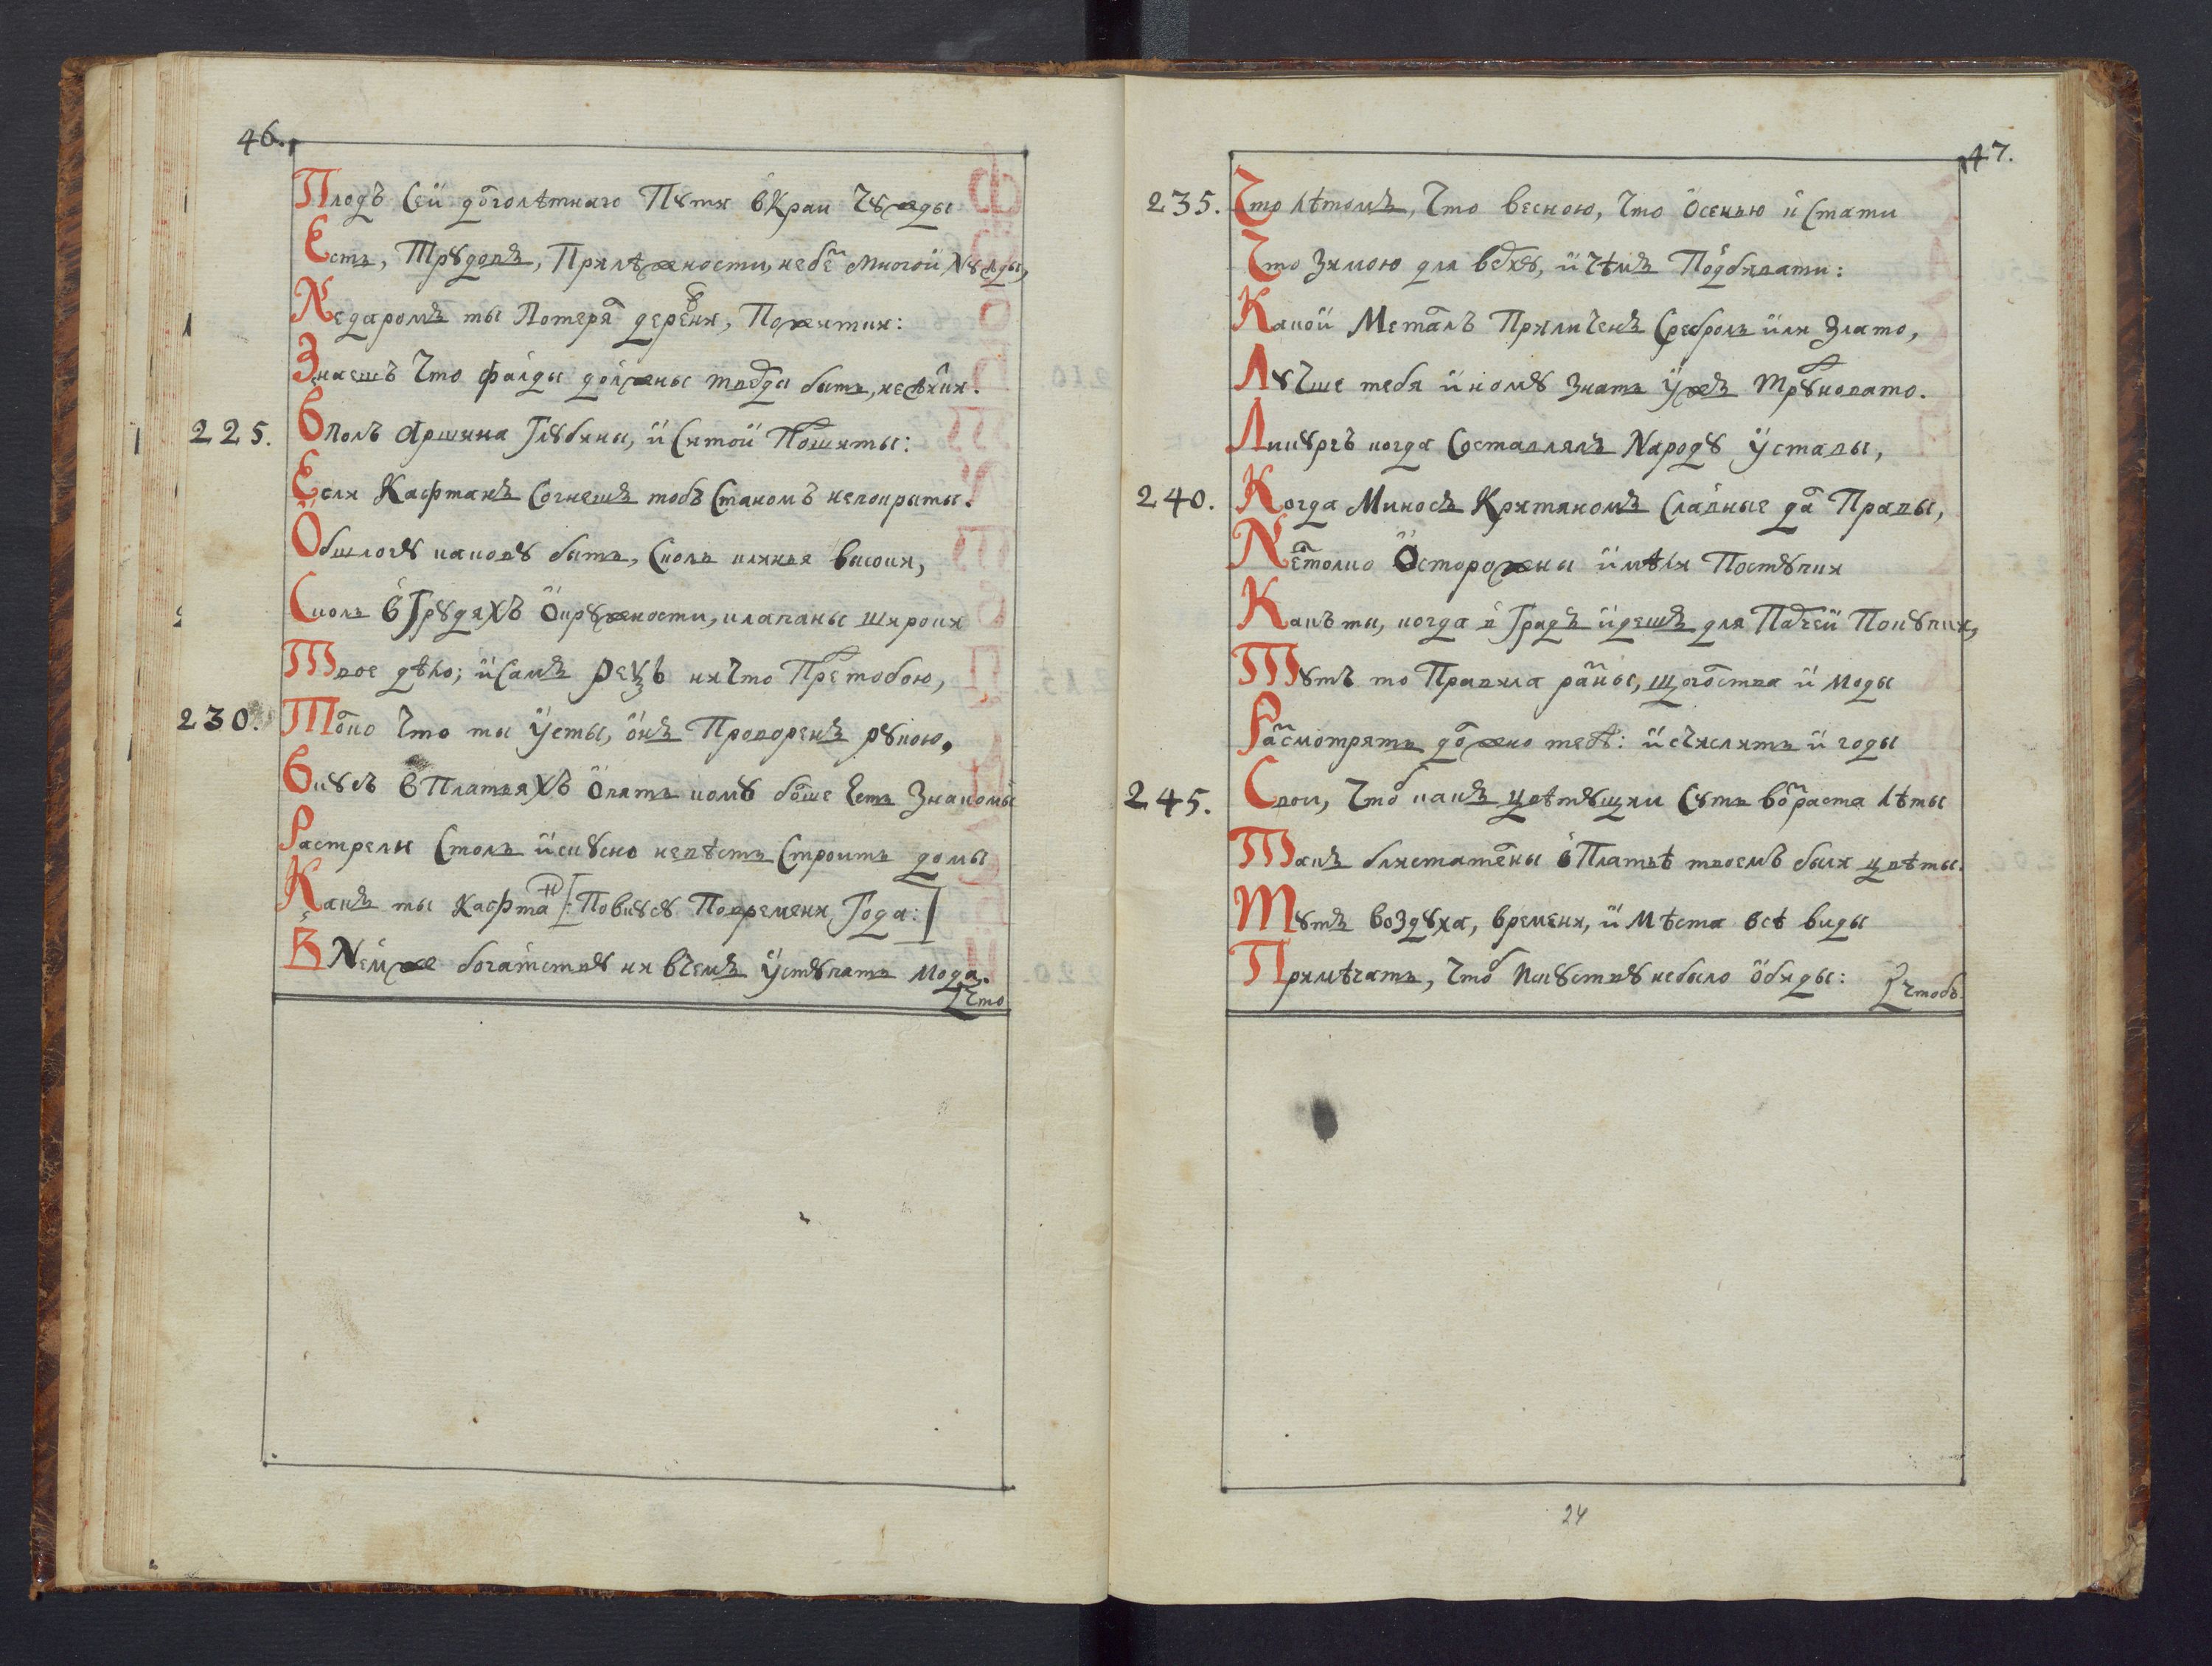 46.
Плодъ Сей до̑голѣтнаго Пꙋти вКраи Чꙋжды
Есть, Трꙋдовъ, Прилѣжности, небе̑ многой Нꙋжды,
Недаромъ ты Потеря̑ деревни, Пожитки:
Знаешъ Что фалды должны тве̑рды быть, нежи̑ки.
225. Вполъ Аршина Глꙋбины, и Ситой По̑шиты:
Если Кафтанъ Согнешъ тобъ Станомъ непокрыты.
Обшлогꙋ каковꙋ быть, Сколь клинья высоки,
Сколь вГрꙋдяхъ Окрꙋжности, клапаны широки
Твое дѣло; иСамъ Рехъ ничто Пре̑тобою,
230. То̑ко Что ты Усты, онъ Проворенъ рꙋкою,
Вкꙋсъ вПлатьяхъ Опять комꙋ бо̑ше Есть Знакомы
Растрели Столь искꙋсно невѣсть Строить домы
Какъ ты Кафтан [: Повкꙋсꙋ Повремени Года:]
В Немже богатствꙋ ни вчемъ Уступать мода.
Что
47.
235. Что лѣтомъ, Что весною, Что Осенью и Стати
Что Зимою для верхꙋ, и Чѣмъ Подбивати:
Какой Металъ Приличенъ Сребролъ или Злато,
Лꙋчше тебя и комꙋ Знать ужъ Трꙋдновато.
Ликꙋргъ когда Составлялъ Народꙋ Уставы,
240. Когда Миносъ Критяномъ Славные да̑ Правы,
Нето̑лко Осторожны имѣли Постꙋпки
Какъ ты, когда в Градъ идешъ для Парчей Покꙋпки,
Тꙋтъ то Правила ра̑ны, щего̑ства и Моды
Ра̑смотрять до̑жно тебѣ: исчислить и годы
245. Свои, Чтоб какъ цвѣтꙋщии Сꙋть во̑раста лѣты
Такъ блистате̑ны вПлатьѣ твоемъ были цвѣты.
Тꙋтъ воздꙋха, времени, и Мѣста всѣ виды
Примѣчать, Чтоб Искꙋствꙋ небыло Обиды:
Чтобъ
24